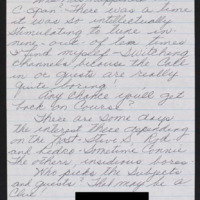 C-Span - There was a time
it was so intellectually
stimulating to tune in.
nine-out-of ten times
I find myself - Switching
channels because the Call
in or guests are really
quite boring!
Any chance you'll get
back on Course?
There are some days
the interest there depending
on the Host - Steve S., Rod
and Pedro - Sometime Connie
The others, insidious bores
Who picks the Subjects
and guests. That may be a